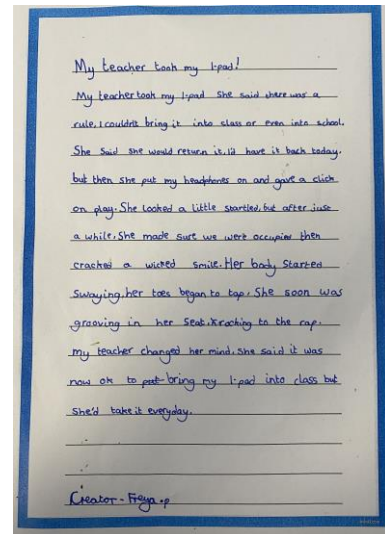 My teacher took my I-pad!
My teacher took my I-pad She said there was a
rule, I couldn't bring it into class or even into school.
She Said she would return it, I'd have it back today.
but then she put my headphones on and gave a click
on play. She looked a little startled, but after just
a while. She made sure we were occupied then
cracked a wicked smile. Her body Started
Swaying, her toes began to tap. She soon was
grooving in her Seat. Krocking to the rap.
my teacher changed her mind. She said it was
now ok to put bring my I-pad into class but
She'd take it everyday.
Creator - Freya.p